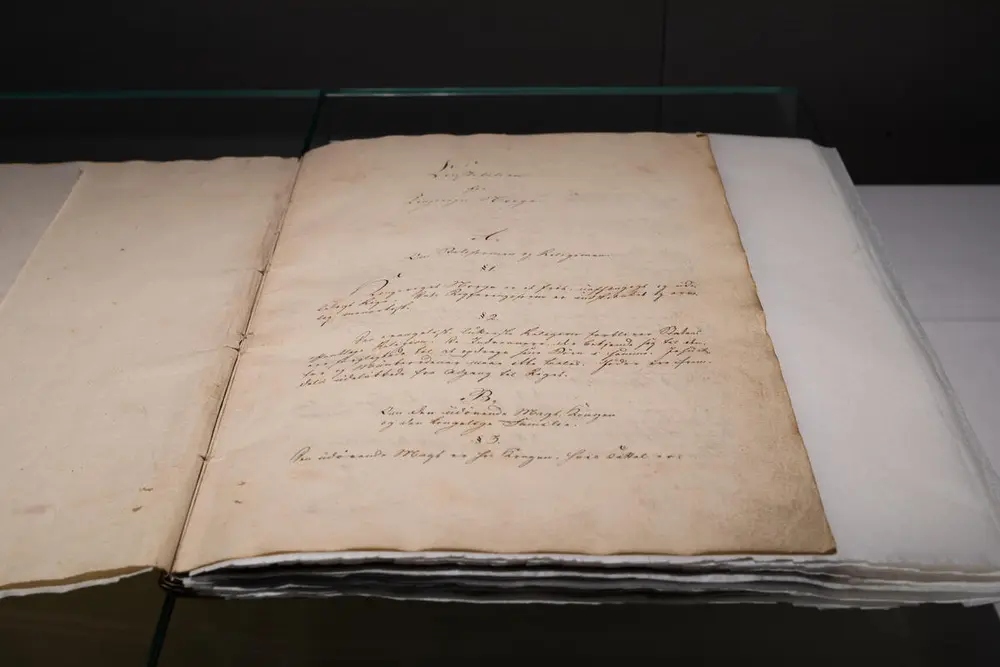 Constitution
for
Kongeriget Norge
A.
Om Statsformen og Religionen.
§ 1.
Kongeriget Norge er et frit, uafhængigt og ude-
leligt Rige. Dets Regjeringsform er indskrænket og arve-
lig monarkisk.
§ 2.
Den evangelisk lutherske Religion forbliver Statens
offentlige Religion. De Indvaanere, der bekjende sig til den,
ere forpligtede til at opdrage sine Børn i samme. Jesuit-
ter og Munkeordener maae ikke taales. Jøder ere frem-
deles udelukkede fra Adgang til Riget.
B.
Om den udøvende Magt, Kongen
og den kongelige Familie.
§ 3.
Den udøvende Magt er hos Kongen. Hans Tittel er: